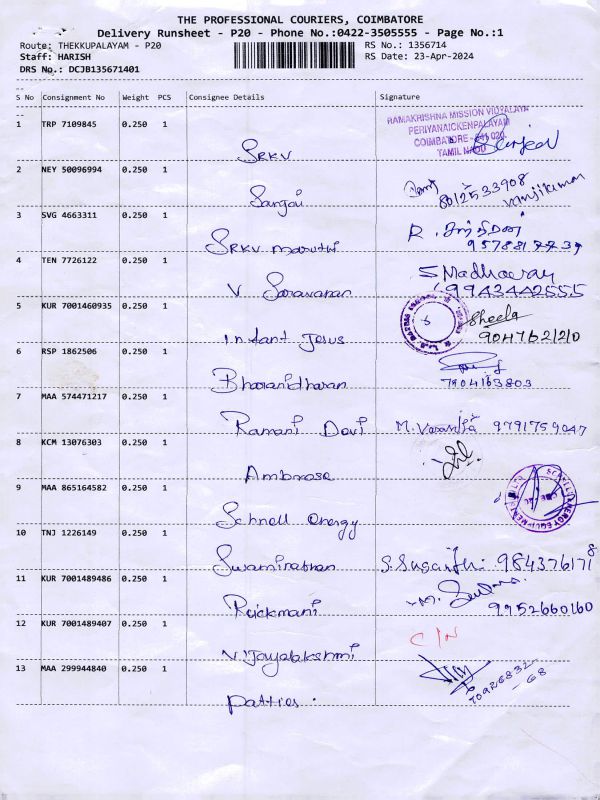 THE PROFESSIONAL COURIERS, COIMBATORE
Delivery Runsheet - P20 - Phone No.:0422-3505555 - Page No.:1
Route: THEKKUPALAYAM - P20
RS No.: 1356714
Staff: HARISH
RS Date: 23-Apr-2024
DRS No.: DCJB135671401
S No Consignment No Weight PCS Consignee Details Signature
1 TRP 7109845 0.250 1
RAMAKRISHNA MISSION VIDYALAYA
PERIYANAICKENPALAYAM
COIMBATORE - 641 020
TAMIL NADU
SRKV
2 NEY 50096994 0.250 1
Sangai
8012533908
Vanjikumar
3 SVG 4663311 0.250 1
SRKV maruthi
R.
4 TEN 7726122 0.250 1
V Saravanan
S Madhavan
9943442555
5 KUR 7001460935 0.250 1
Infant Jesus
Sheela
9047621210
6 RSP 1862506 0.250 1
Bharanidharan
7904163803
7 MAA 574471217 0.250 1
Ramani Devi M. Vasantha 9791759047
8 KCM 13076303 0.250 1
Ambrose
9 MAA 865164582 0.250 1
Schnell energy
10 TNJ 1226149 0.250 1
Swaminathan S. Suganthi 9843761718
11 KUR 7001489486 0.250 1
Ruickmani
9952660160
12 KUR 7001489407 0.250 1
C/N
Vijayalakshmi
13 MAA 299944840 0.250 1
7092683268
Patties.